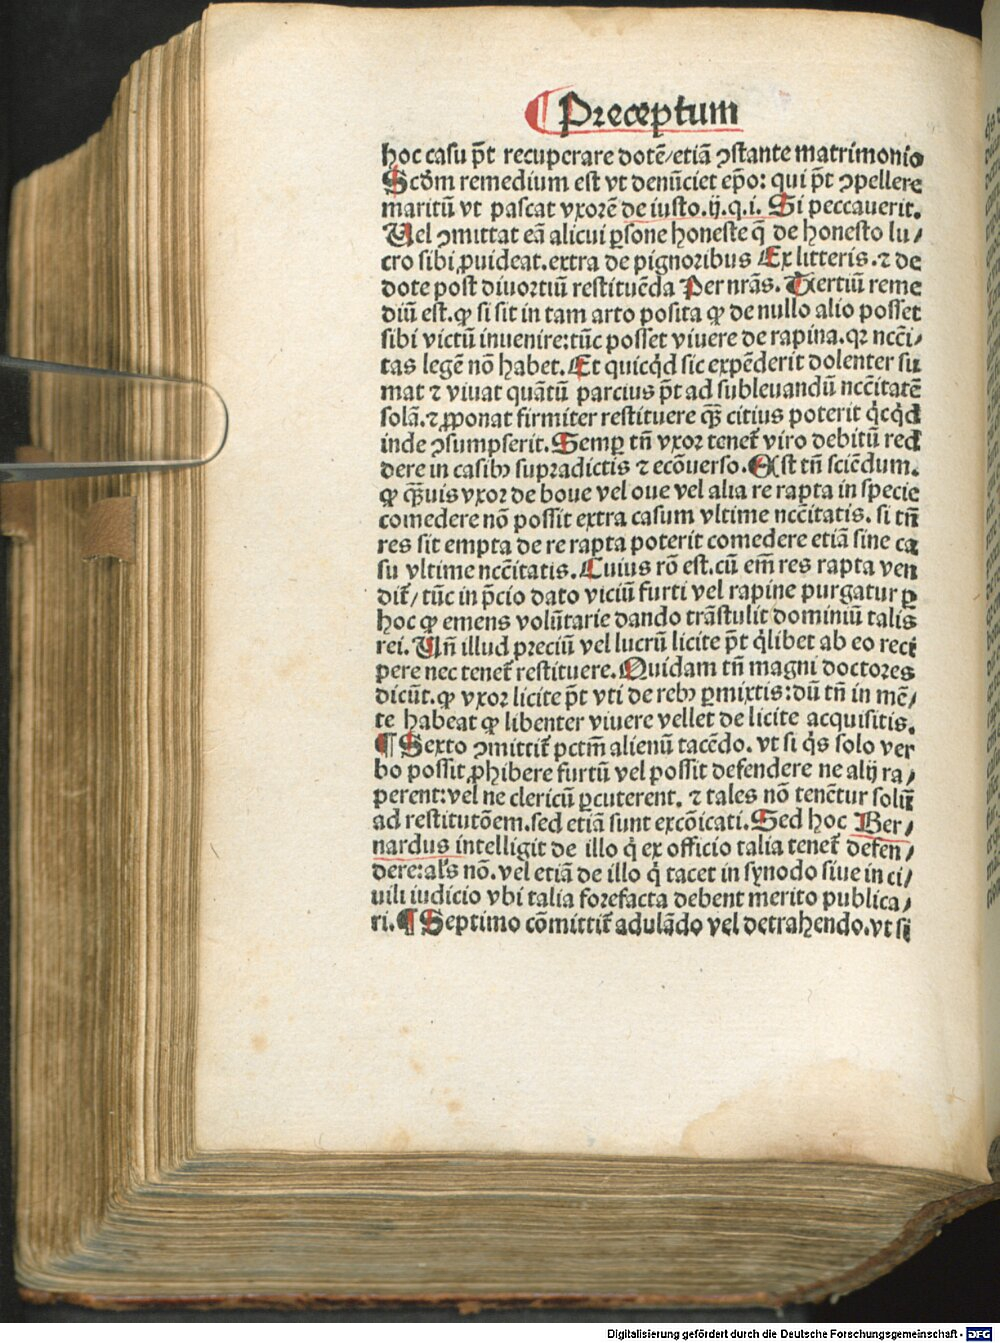 ¶ Preceptum
hoc casu p̄t recuperare dotē/etiā ꝯstante matrimonio
Scḋm remedium est vt denūciet ep̄o: qui p̄t ꝯpellere
maritū vt pascat vxorē de iusto.ij.q.i. Si peccauerit.
Uel ꝯmittat eā alicui ꝑsone honeste q̄ de honesto lu/
cro sibi ꝓuideat.extra de pignoribus Ex litteris.⁊ de
dote post diuortiū restituēda Per nrās. Tertiū reme
diū est.ꝙ si sit in tam arto posita ꝙ de nullo alio posset
sibi victū inuenire:tūc posset viuere de rapina.qꝛ nccī/
tas legē nō habet.Et quicq̇d sic expēderit dolenter su
mat ⁊ viuat quātū parcius p̄t ad subleuandū nccītatē
solā.⁊ ꝓponat firmiter restituere qȝ̄ citius poterit q̇cq̇d
inde ꝯsumpserit.Semꝑ tn̄ vxor tenet̄ viro debitū red
dere in casibꝫ supradictis ⁊ ecōuerso.Est tn̄ sciēdum.
ꝙ qȝ̄uis vxor de boue vel oue vel alia re rapta in specie
comedere nō possit extra casum vltime nccītatis. si tn̄
res sit empta de re rapta poterit comedere etiā sine ca
su vltime nccītatis.Cuius rō est.cū em̄ res rapta ven
dit̄/tūc in p̄cio dato viciū furti vel rapine purgatur ꝑ
hoc ꝙ emens volūtarie dando trāstulit dominiū talis
rei.Un̄ illud preciū vel lucrū licite p̄t q̇libet ab eo reci
pere nec tenet̄ restituere.Quidam tn̄ magni doctores
dicūt.ꝙ vxor licite p̄t vti de rebꝫ ꝑmixtis:dū tn̄ in mē/
te habeat ꝙ libenter viuere vellet de licite acquisitis.
¶ Sexto ꝯmittit̄ pctm̄ alienū tacēdo. vt si q̇s solo ver
bo possit ꝓhibere furtū vel possit defendere ne alij ra/
perent:vel ne clericū ꝑcuterent. ⁊ tales nō tenētur solū
ad restitutōem.sed etiā sunt excōicati.Sed hoc Ber/
nardus intelligit de illo q̇ ex officio talia tenet̄ defen/
dere:als̄ nō.vel etiā de illo q̇ tacet in synodo siue in ci/
uili iudicio vbi talia forefacta debent merito publica/
ri.¶ Septimo cōmittit̄ adulādo vel detrahendo.vt si
Digitalisierung gefördert durch die Deutsche Forschungsgemeinschaft - DFG